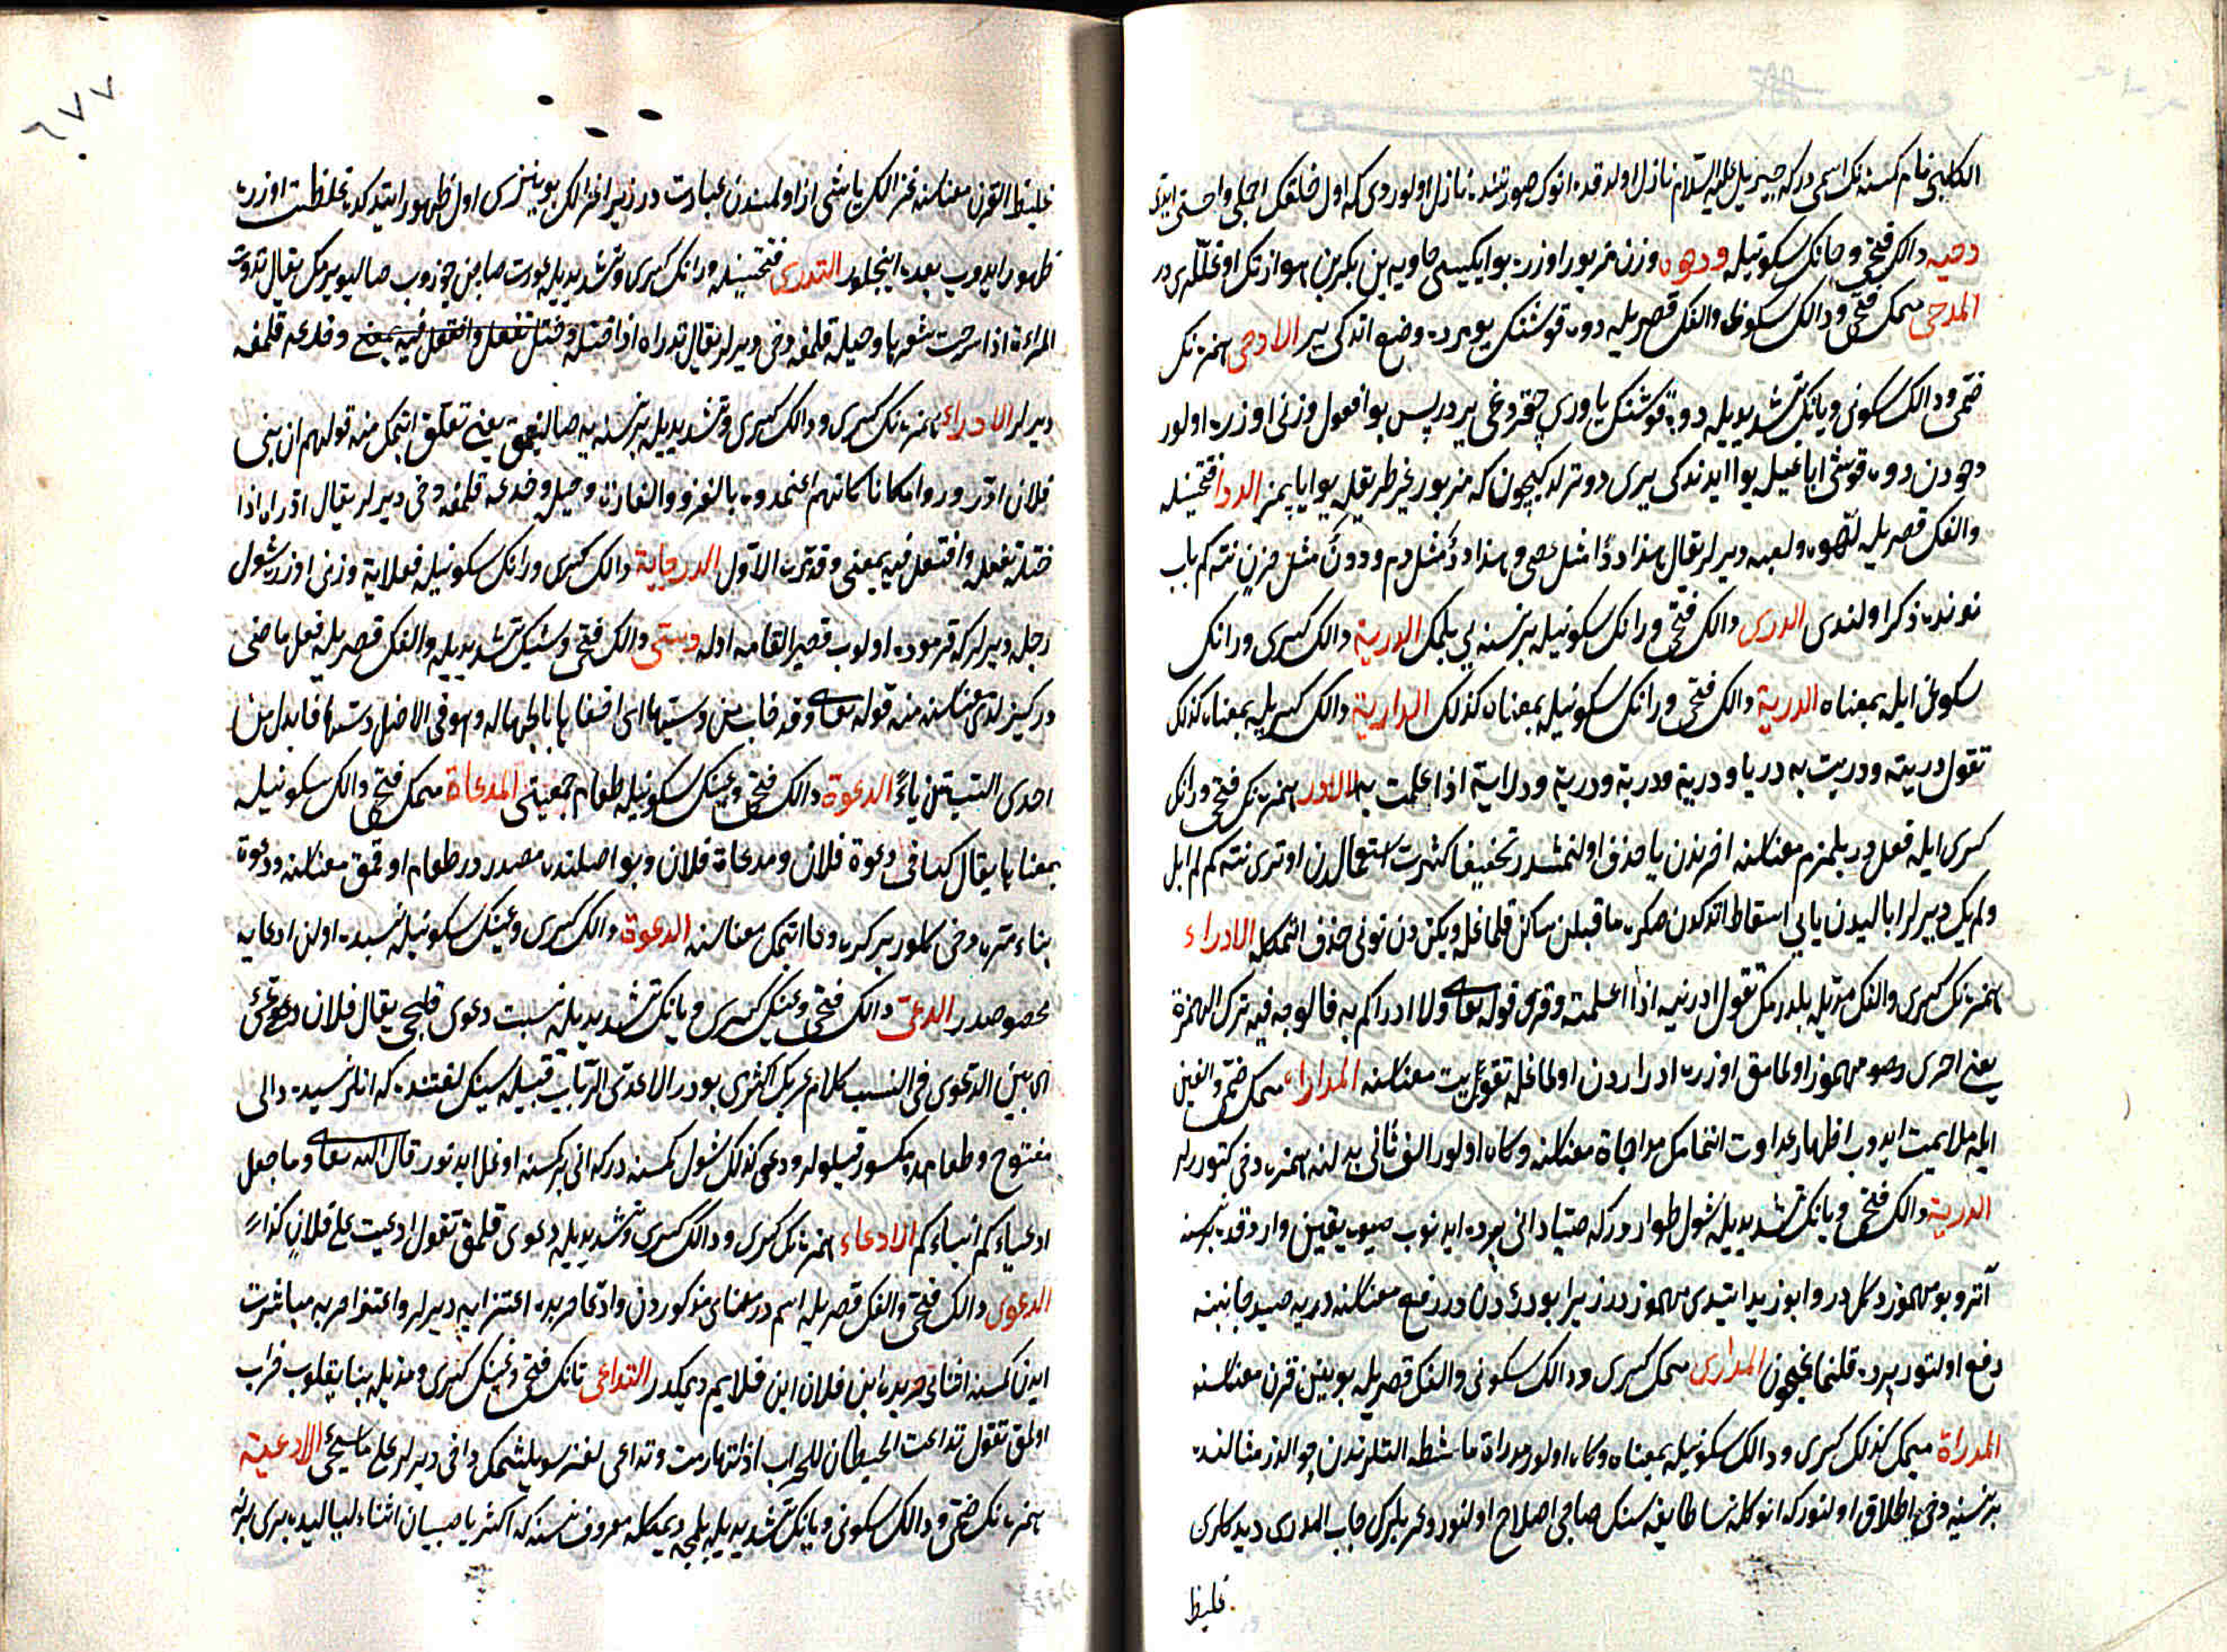 الكلبي نام كمسنه نك اسمى دركه جبريل عليه السلام نازل اولدقده انوك صورتنده نازل اولوردى كه اول خلقك اجملى واحسنى ايدى
دحيه دالك فتحى وحانك سكونيله ودهوه وزن مزبور اوزره بو ايكيسى معاويه بن بكر بن هوازنك اوغللريدر
المدحى ميمك فتحى ودالك سكونى والفك قصريله دوه قوشنك يومرده وضع اتدكى ير الادحى همزه نك
ضمى ودالك سكونى ويانك تشديديله دوه قوشنك ياورى چقردغى يردر پس بو افعول وزنى اوزره اولور
دحودن دوه قوشى اياغيله يوا ايدندكى يرى دوشرلر كچون كه مزبور غير طريقله يوا ياپمز الددا فتحتينله
والفك قصريله لهو ولعبه ديرلر يقال هذا ددا مثل عصى وهذا دد مثل دم وددن مثل حزن نته كم باب
نونده ذكر اولندى الدرى دالك فتحى ورانك سكونيله برنسنه يى بلمك الدرية دالك كسرى ورانك
سكونى ايله بمعناه الدرية دالك فتحى ورانك سكونيله بمعناه كذلك الدراية دالك كسريله بمعناه كذلك
تقول دريته ودريت به دريا ودرية ودرية ودرية ودراية اذا علمت به لا ادر همزه نك فتحى ورانك
كسرى ايله فعلدر بلمزم معناسنه اخرندن يا حذف اولنمشدر تخفيفا كثرت استعمالدن اوترى نته كم لم ابل
ولم يك ديرلر ابالى دن يايى اسقاط اتدكدن صكره ماقبلن ساكن قلماغله ويكن دن نونى حذف اتمكله الادراء
همزه نك كسرى والفك مديله بلدرمك تقول ادريته اذا اعلمته وقرئ قوله تعالى ولا ادراكم به فالوجه فيه ترك الهمزة
يعنى احرى وصو مهموز اولمامق اوزره ادرادن اولماغله تقويت معناسنه المداراة ميمك ضمى والفين
ايله ملايمت ايدوب اظهار عداوت اتمامك مداجاة معناسنه وكاه اولور الف ثانى بدلنه همزه دخى كتوررلر
الدرية دالك فتحى ويانك تشديديله شول طواردركه صياد انى پرده ايدنوب صيده يقين واردقده برنسنه
آتر و بو مهموز دكلدر وابو زيد ايتدى مهموزدر زيرا بو درئ دن در دفع معناسنه دريه صيد جانبنه
دفع اولنور پرده قلنماغچون المدرى ميمك كسرى ودالك سكونى والفك قصريله بوينز قرن معناسنه
المدراة ميمك كذلك كسرى ودالك سكونيله بمعناه وكاه اولور مدراة ماشطه التلرندن چوالدز مثالنده
برنسنيه دخى اطلاق اولنور كه انوكله نسا طايفه سنك صاچى اصلاح اولنور وعربلرك جاب المدرى ديدكلرى
غليظ
غليظ القرن معناسنه غزالك ياشى از اولمسندن عبارتدر زيرا غزالك بوينزى اول ظهور ايتدكده غلظت اوزره
ظهور ايدوب بعده اينجلور التدرى فتحتينله ورانك كسرى وتشديديله عورت صاچن چوزوب صاليويرمك يقال تدرت
المرأة اذا سرحت شعرها وحيله قلمغه دخى ديرلر يقال تدراه اذا ختله وختل تفعل وافتعل فيه بمعنى وخدعه قلمغه
ديرلر الادراء همزه نك كسرى ودالك كسرى وتشديديله برنسنه يه صالنمق يعنى تعلق اتمك منه قولهم ان بنى
فلان ادروا مكانا كانهم اعتمدوه بالغزو والغارة وحيله وخدعه قلمغه دخى ديرلر يقال ادراه اذا
ختله تفعل وافتعل فيه بمعنى وقد مر الاول الدرحاية دالك كسرى ورانك سكونيله فعلاية وزنى اوزره شول
رجله ديرلر كه قرموده اولوب قصير القامه اوله دسى دالك فتحى وسينك تشديديله والفك قصريله فعل ماضى
در كيزلندى معناسنه منه قوله تعالى وقد خاب من دسيها اى اخفاها بالجهاله وهو فى الاصل دسسها فابدل من
احدى السينين ياء الدعوة دالك فتحى وعينك سكونيله طعام جمعيتى المدعاة ميمك فتحى دالك سكونيله
بمعناها يقال كنا فى دعوة فلان ومدعاة فلان وبو اصلنده مصدردر طعام اوقمق معناسنه ودعوة
بناء مره دخى كلور بركره دعا اتمك معناسنه الدعوة دالك كسرى وعينك سكونيله نسبده اولن ادعايه
مخصوصدر الدعى دالك فتحى وعينك كسرى ويانك تشديديله نسبت دعوى قلجى يقال فلان دعى
اى بين الدعوى فى النسب كلام عربك اكثرى بودر الا عدى الرباب قبيله سينك لغتنده كه انلر نسبده دالى
مفتوح وطعامده مكسور قيلورلر ودعى كذلك شول كمسنه دركه انى بركمسنه اوغل ايدنور قال الله تعالى وما جعل
ادعياءكم ابناءكم الادعاء همزه نك كسرى ودالك كسرى وتشديديله دعوى قلمق تقول ادعيت على فلان كذا
الدعوى دالك فتحى والفك قصريله اسمدر معناى مذكوردن وادعا حربده اعتزايه ديرلر واعتزا حربه مباشرت
ايدن كمسنه اثناى حربده ابن فلان ابن فلانيم ديمكدر التداعى تانك فتحى وعينك كسرى ومديله بنا يقلوب خراب
اولمق تقول تداعت الحيطان للخراب اذا تهادمت وتداعى لغز سويلشمك دخى ديرلر على ما سيجئ الادعية
همزه نك ضمى ودالك سكونى ويانك تشديديله بلمجه ديمكله معروف نسنه كه اكثريا صبيان اثناء لياليده برى برينه
٦٧٧